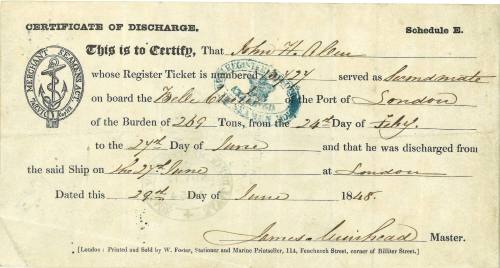 CERTIFICATE OF DISCHARGE. Schedule E.
MERCHANT SEAMANS ACT,
This is to Certify, That John H.
whose Register Ticket is numbered served as Second mate
on board the of the Port of London
of the Burden of 269 Tons, from the 24th Day of Feby
to the 27th Day of June and that he was discharged from
the said Ship on the 27th June at London
Dated this 29th Day of June 1848.
James Muirhead Master.
[London: Printed and Sold by W. Foster, Stationer and Marine Printseller, 114, Fenchurch Street, corner of Billiter Street.]